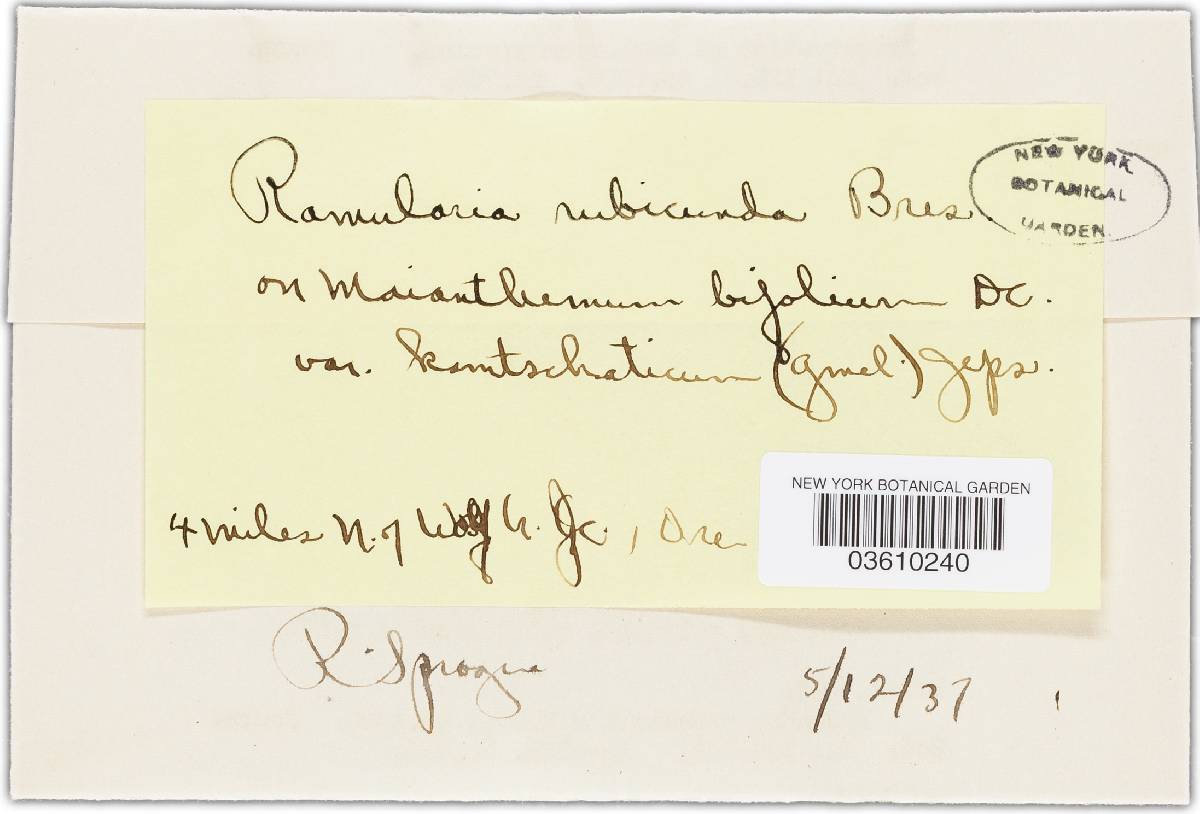 Ramularia rubicunda Bres.
NEW YORK
BOTANICAL
GARDEN.
on Maianthemum bifolium DC.
var. kamtschaticum (Gmel.) Jeps.
4 miles N. of Wolf Cr. Jc., Ore
NEW YORK BOTANICAL GARDEN
03610240
R. Sprague
5/12/37